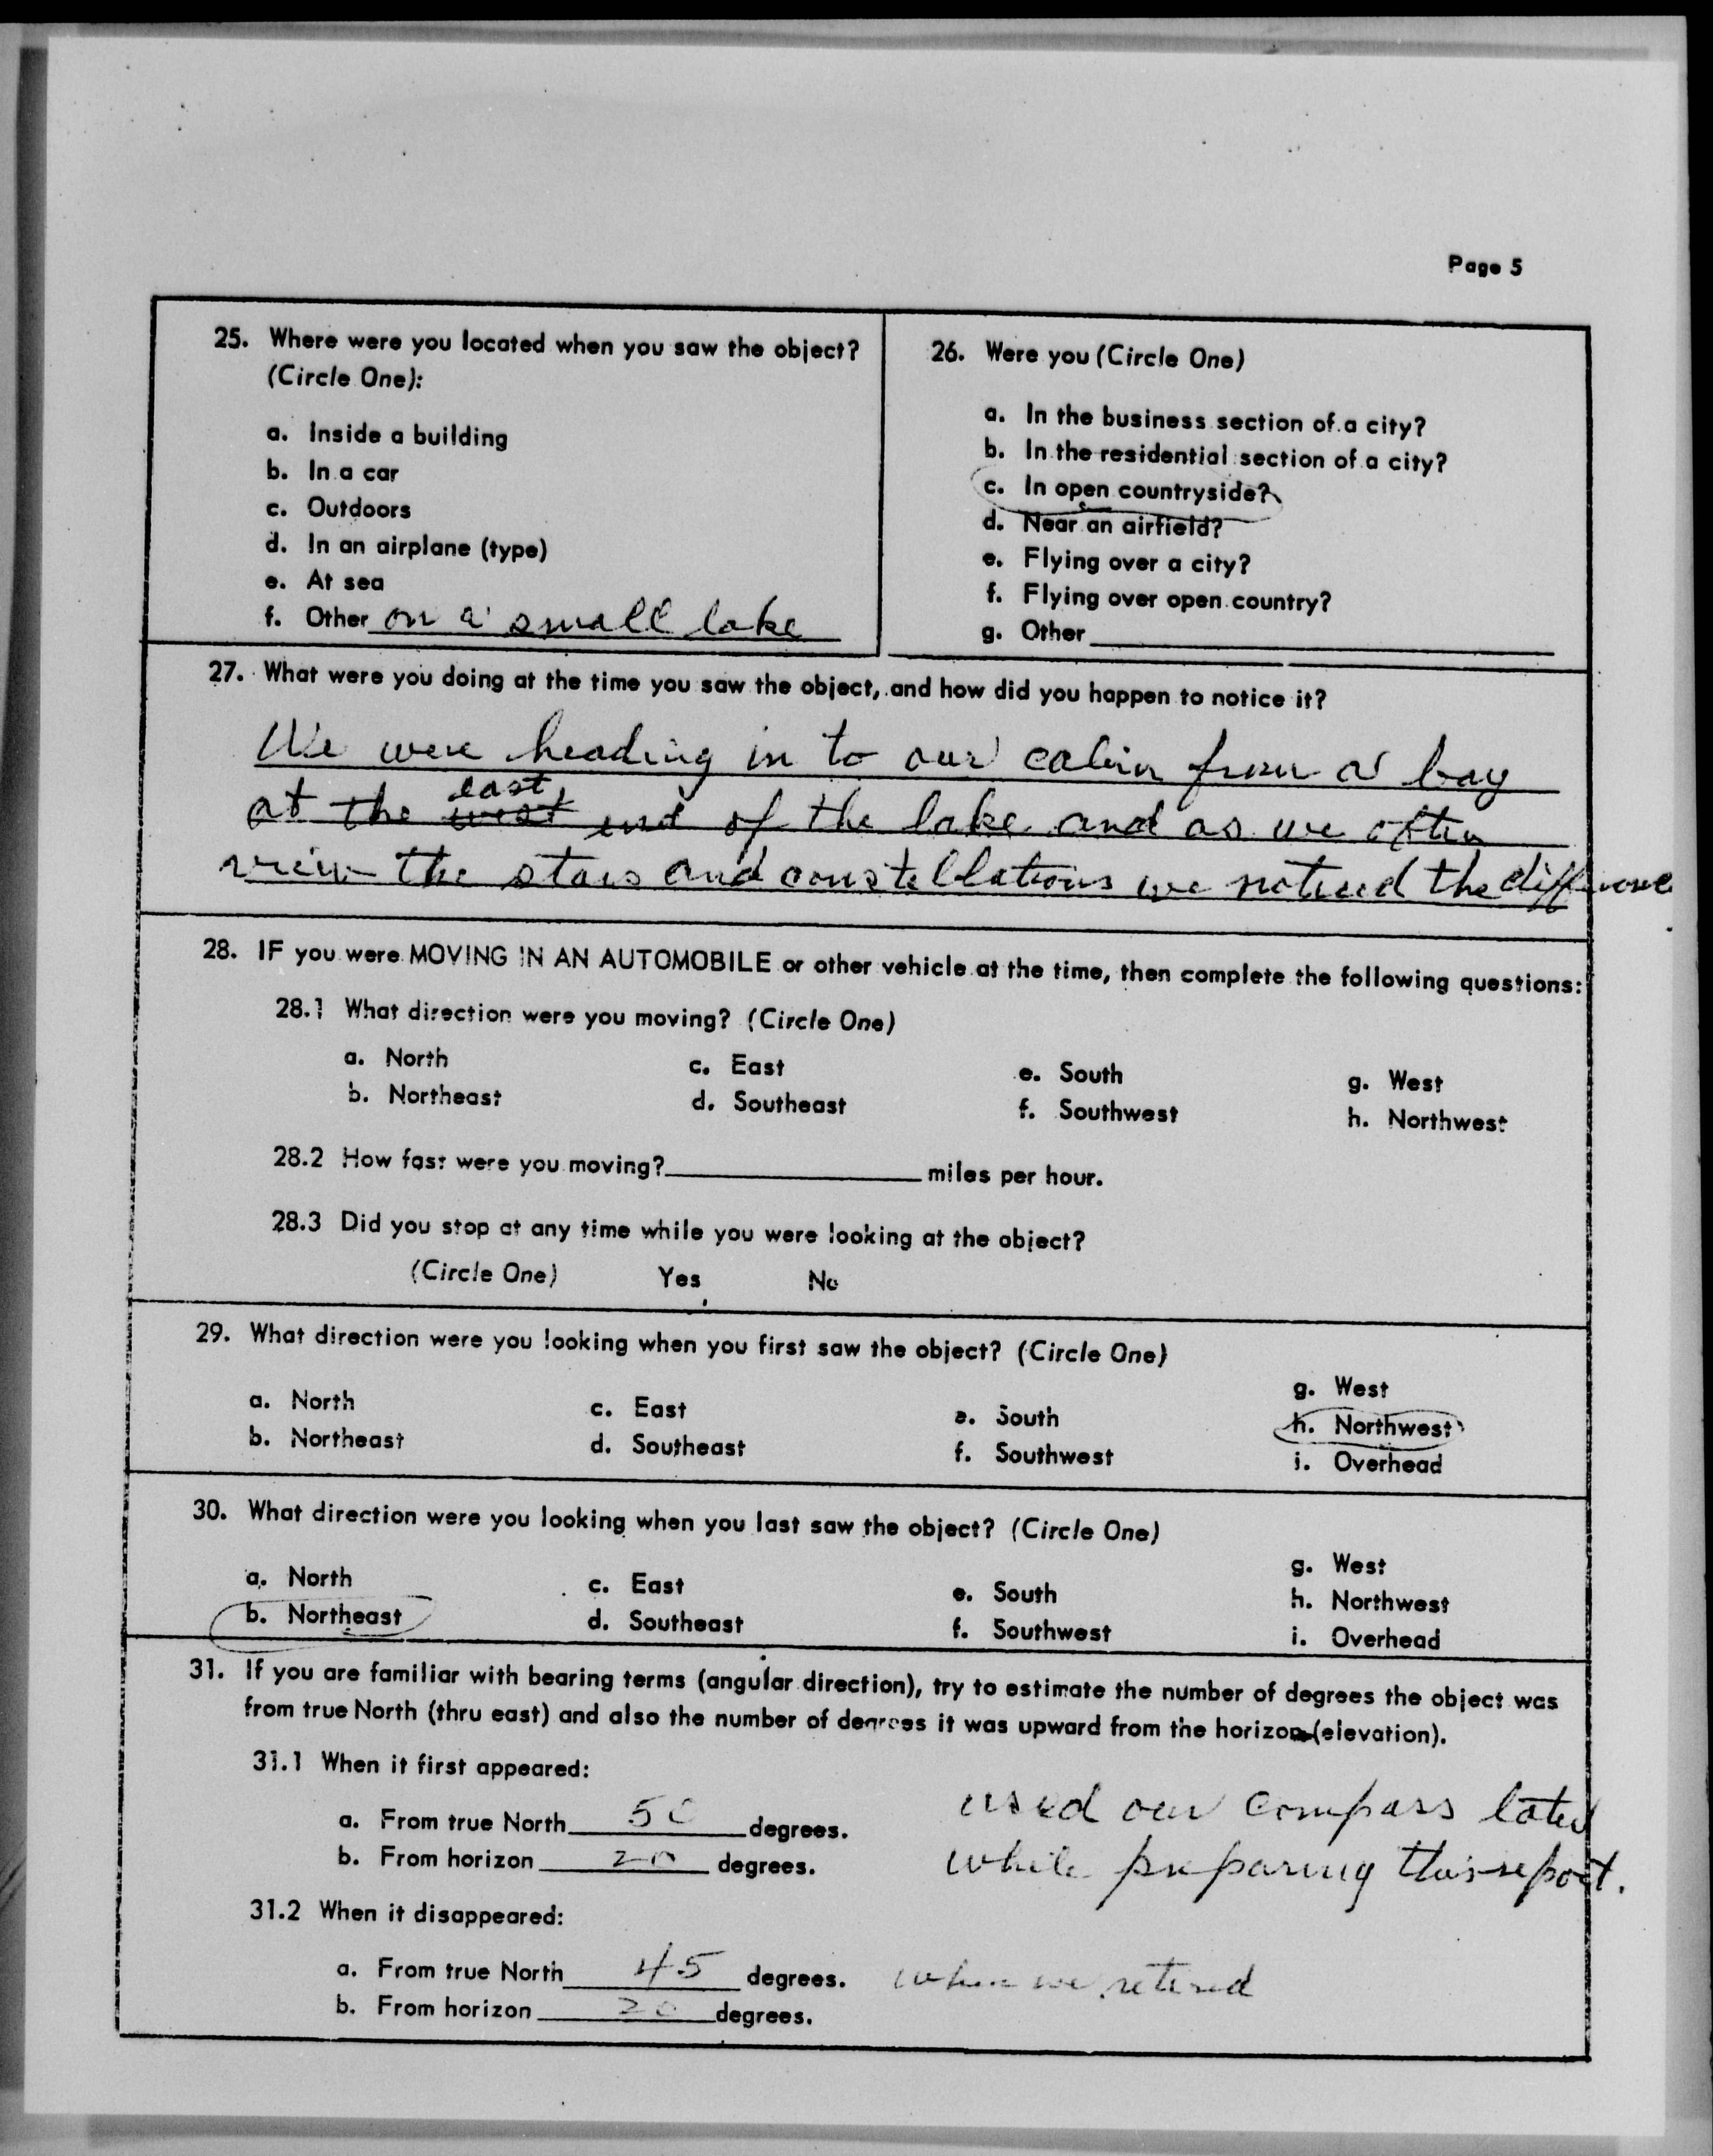 Page 5
25. Where were you located when you saw the object?
(Circle One):
a. Inside a building
b. In a car
c. Outdoors
d. In an airplane (type)
e. At sea
f. Other on a small lake
26. Were you (Circle One)
a. In the business section of a city?
b. In the residential section of a city?
c. In open countryside?
d. Near an airfield?
e. Flying over a city?
f. Flying over open country?
g. Other
27. What were you doing at the time you saw the object, and how did you happen to notice it?
We were heading in to our cabin from a bay
east
at the west end of the lake and as we often
view the stars and constellations we noticed the difference
28. IF you were MOVING IN AN AUTOMOBILE or other vehicle at the time, then complete the following questions:
28.1 What direction were you moving? (Circle One)
a. North c. East e. South g. West
b. Northeast d. Southeast f. Southwest h. Northwest
28.2 How fast were you moving? miles per hour.
28.3 Did you stop at any time while you were looking at the object?
(Circle One) Yes No
29. What direction were you looking when you first saw the object? (Circle One)
a. North c. East e. South g. West
b. Northeast d. Southeast f. Southwest h. Northwest
i. Overhead
30. What direction were you looking when you last saw the object? (Circle One)
a. North c. East e. South g. West
b. Northeast d. Southeast f. Southwest h. Northwest
i. Overhead
31. If you are familiar with bearing terms (angular direction), try to estimate the number of degrees the object was
from true North (thru east) and also the number of degrees it was upward from the horizon (elevation).
31.1 When it first appeared:
a. From true North 50 degrees. used our compass later
b. From horizon 20 degrees. while preparing this report.
31.2 When it disappeared:
a. From true North 45 degrees. when we retired
b. From horizon 20 degrees.